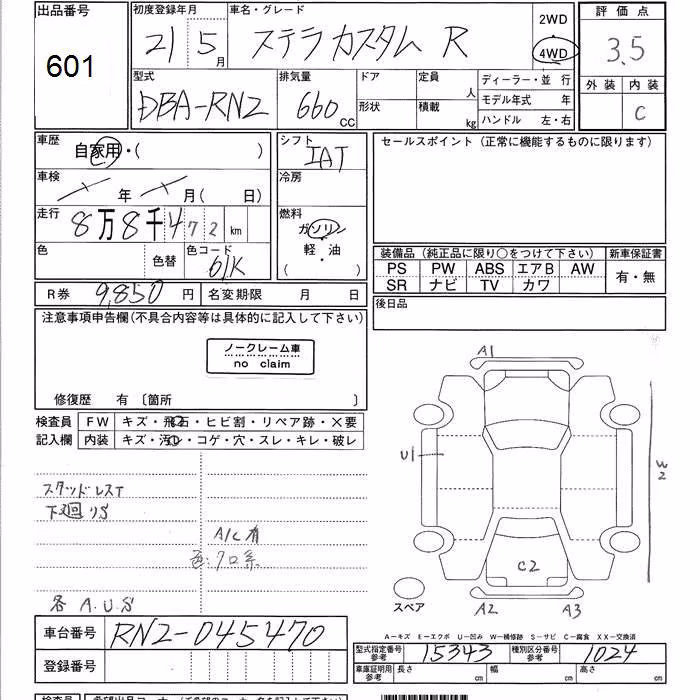 出品番号 初度登録年月 車名・グレード 2WD 評価点
601 21 5月 ステラカスタム R 4WD 3.5
型式 排気量 ドア 定員 人 ディーラー・並行 外装 内装
DBA-RN2 660 CC 形状 積載 kg モデル年式 年 C
ハンドル 左・右
車歴 自家用・( ) シフト IAT セールスポイント (正常に機能するものに限ります)
車検 年 月( 日) 冷房
走行 8万8千472 km 燃料 ガソリン
色 色替 色コード 61K 軽・油
( ・ )
装備品 (純正品に限り○をつけて下さい) 新車保証書
PS PW ABS エアB AW 有・無
SR ナビ TV カワ
R券 9,850 円 名変期限 月 日 後日品
注意事項申告欄(不具合内容等は具体的に記入して下さい)
ノークレーム車
no claim
修復歴 有 〔箇所 〕
検査員 FW キズ・飛石・ヒビ割・リペア跡・×要
記入欄 内装 キズ・汚れ・コゲ・穴・スレ・キレ・破レ
A1
U1
W2
C2
スペア A2 A3
スタッドレスT
下廻りS
A/C有
色:クロ系
各 A.U.S
A−キズ E−エクボ U−凹み W−補修跡 S−サビ C−腐食 XX−交換済
車台番号 RN2-045470
型式指定番号 参考 15343 種別区分番号 参考 1024
登録番号 車庫証明用 参考 長さ cm 幅 cm 高さ cm